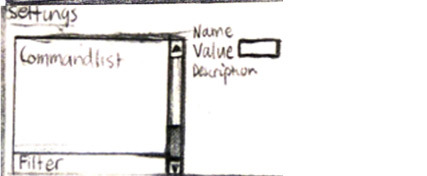 Settings
Commandlist
Filter
Name
Value
Description